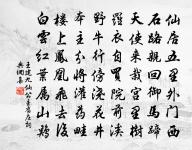 仙居五里外門西
石路親回御馬蹄
天使來栽宮裏樹
羅衣自買院前溪
野牛行傍澆花井
本主分將灌藥畦
樓上鳳凰飛去後
白雲紅葉屬山雞
王建九仙公主舊莊